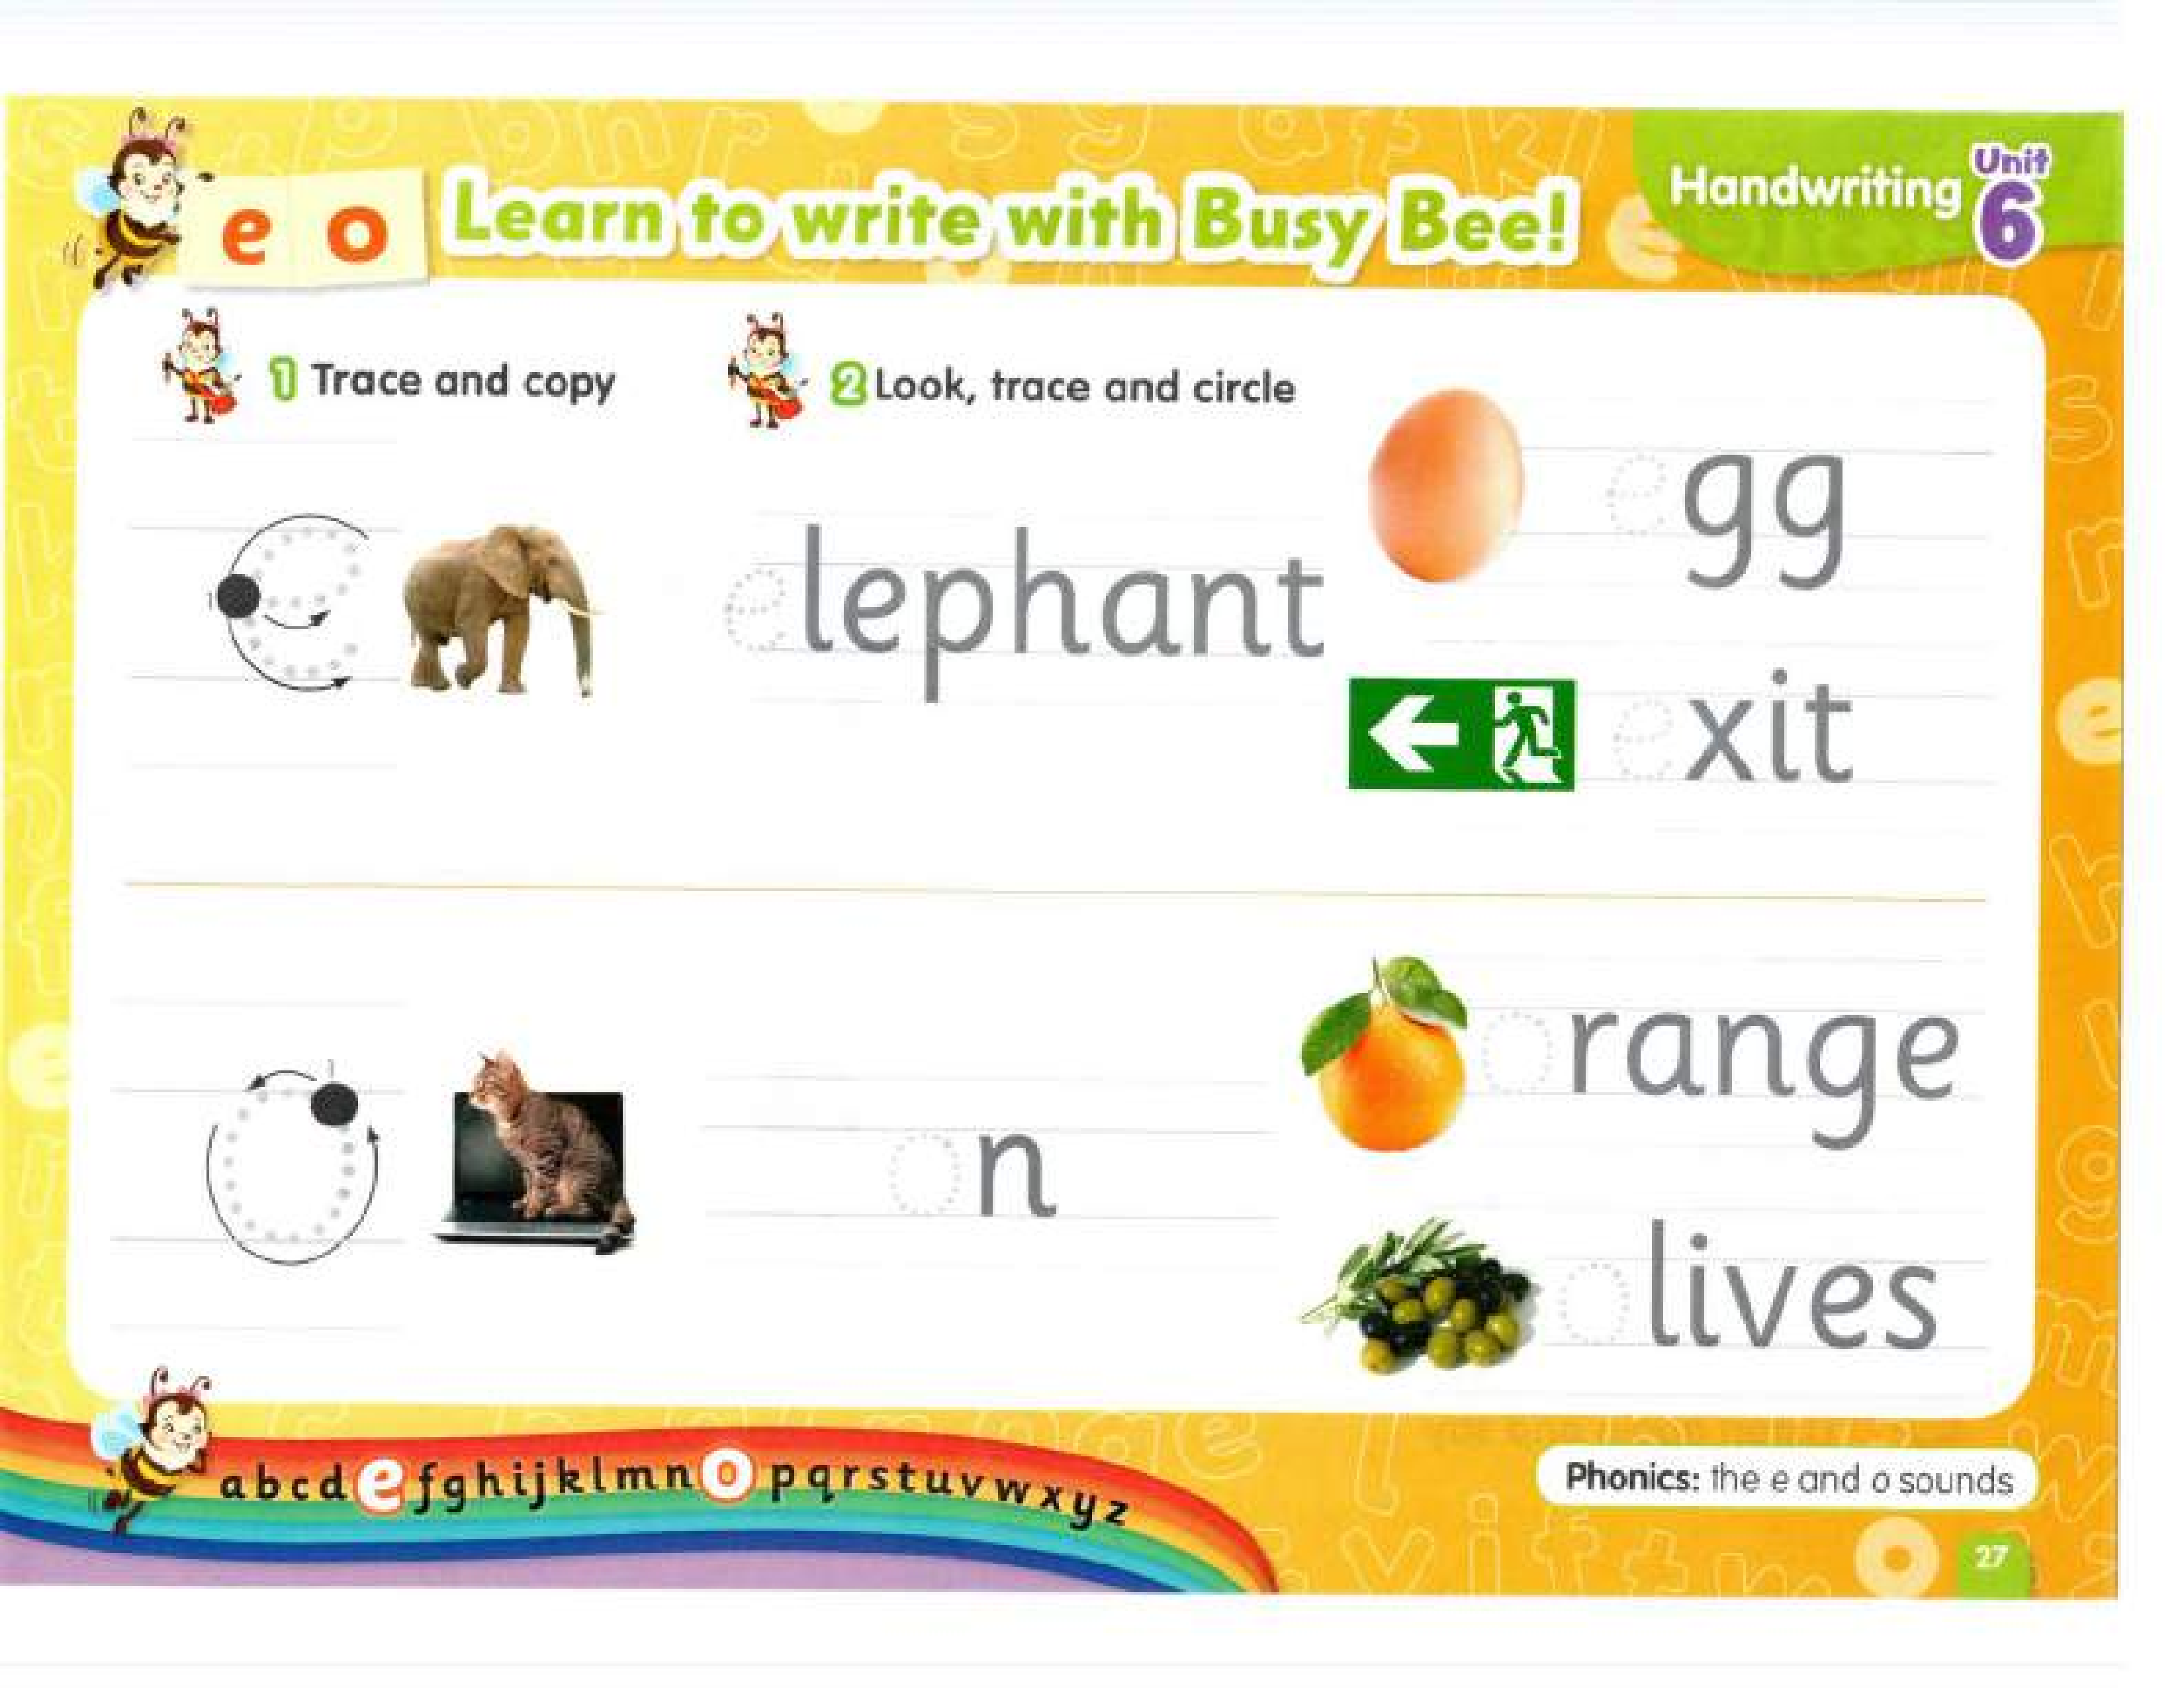 e o Learn to write with Busy Bee!
Handwriting Unit 6
1 Trace and copy
2 Look, trace and circle
e
elephant
egg
exit
1
o
on
orange
olives
1
abcdefghijklmnopqrstuvwxyz
Phonics: the e and o sounds
27